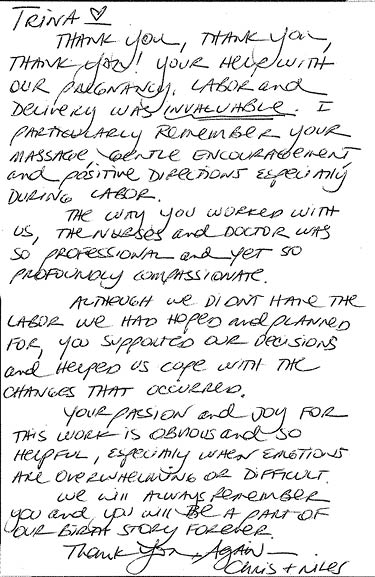 TRINA ♡
THANK YOU, THANK YOU,
THANK YOU! YOUR HELP WITH
OUR PREGNANCY, LABOR and
DELIVERY WAS INVALUABLE. I
PARTICULARLY REMEMBER YOUR
MASSAGE, GENTLE ENCOURAGEMENT,
and POSITIVE DIRECTIONS ESPECIALLY
DURING LABOR.
THE WAY YOU WORKED WITH
US, THE NURSES and DOCTOR WAS
SO PROFESSIONAL and YET SO
PROFOUNDLY COMPASSIONATE.
ALTHOUGH WE DIDNT HAVE THE
LABOR WE HAD HOPED and PLANNED
FOR, YOU SUPPORTED OUR DECISIONS
and HELPED US COPE WITH THE
CHANGES THAT OCCURRED.
YOUR PASSION and JOY FOR
THIS WORK IS OBVIOUS and SO
HELPFUL, ESPECIALLY WHEN EMOTIONS
ARE OVERWHELMING OR DIFFICULT.
WE WILL ALWAYS REMEMBER
YOU and YOU WILL BE A PART OF
OUR BIRTH STORY FOREVER.
THANK YOU AGAIN —
Chris +